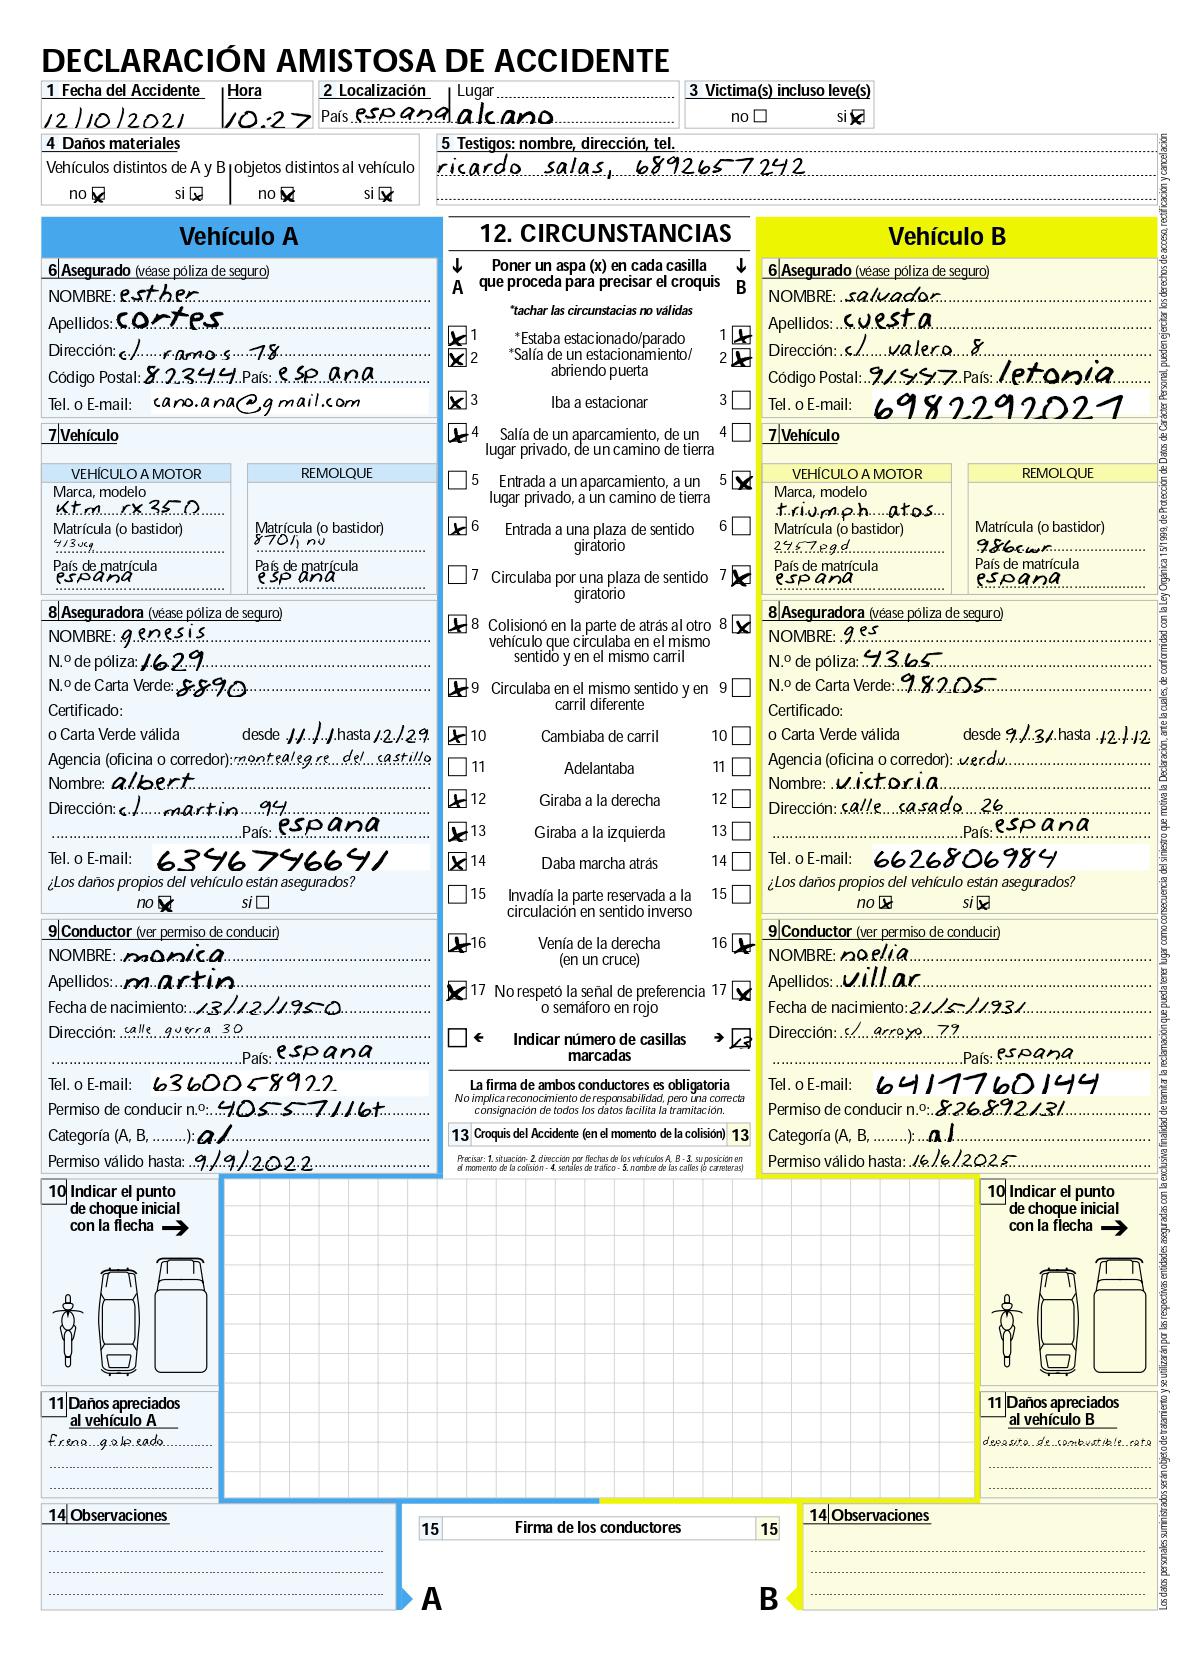 DECLARACIÓN AMISTOSA DE ACCIDENTE
1 Fecha del Accidente Hora
12/10/2021 10:27
2 Localización Lugar
País españa alcano
3 Victima(s) incluso leve(s)
no si
4 Daños materiales
Vehículos distintos de A y B objetos distintos al vehículo
no si no si
5 Testigos: nombre, dirección, tel.
ricardo salas, 6892657242
Vehículo A
6 Asegurado (véase póliza de seguro)
NOMBRE: esther
Apellidos: cortes
Dirección: c/ ramos 78
Código Postal: 82344 País: españa
Tel. o E-mail: cano.ana@gmail.com
7 Vehículo
VEHÍCULO A MOTOR REMOLQUE
Marca, modelo
ktm rx350
Matrícula (o bastidor) Matrícula (o bastidor)
413ucg 8701jnu
País de matrícula País de matrícula
espana espana
8 Aseguradora (véase póliza de seguro)
NOMBRE: genesis
N.º de póliza: 1629
N.º de Carta Verde: 8890
Certificado:
o Carta Verde válida desde 11/1 hasta 12/29
Agencia (oficina o corredor): montealegre del castillo
Nombre: albert
Dirección: c/ martin 94
País: espana
Tel. o E-mail: 6346746641
¿Los daños propios del vehículo están asegurados?
no si
9 Conductor (ver permiso de conducir)
NOMBRE: monica
Apellidos: martin
Fecha de nacimiento: 13/12/1950
Dirección: calle guerra 30
País: espana
Tel. o E-mail: 6360058922
Permiso de conducir n.º: 405557116t
Categoría (A, B, ........): a1
Permiso válido hasta: 9/9/2022
10 Indicar el punto
de choque inicial
con la flecha →
11 Daños apreciados
al vehículo A
freno golpeado
14 Observaciones
12. CIRCUNSTANCIAS
↓ Poner un aspa (x) en cada casilla ↓
A que proceda para precisar el croquis B
*tachar las circunstacias no válidas
1 *Estaba estacionado/parado 1
2 *Salía de un estacionamiento/ 2
abriendo puerta
3 Iba a estacionar 3
4 Salía de un aparcamiento, de un 4
lugar privado, de un camino de tierra
5 Entrada a un aparcamiento, a un 5
lugar privado, a un camino de tierra
6 Entrada a una plaza de sentido 6
giratorio
7 Circulaba por una plaza de sentido 7
giratorio
8 Colisionó en la parte de atrás al otro 8
vehículo que circulaba en el mismo
sentido y en el mismo carril
9 Circulaba en el mismo sentido y en 9
carril diferente
10 Cambiaba de carril 10
11 Adelantaba 11
12 Giraba a la derecha 12
13 Giraba a la izquierda 13
14 Daba marcha atrás 14
15 Invadía la parte reservada a la 15
circulación en sentido inverso
16 Venía de la derecha 16
(en un cruce)
17 No respetó la señal de preferencia 17
o semáforo en rojo
← Indicar número de casillas → 13
marcadas
La firma de ambos conductores es obligatoria
No implica reconocimiento de responsabilidad, pero una correcta
consignación de todos los datos facilita la tramitación.
13 Croquis del Accidente (en el momento de la colisión) 13
Precisar: 1. situación- 2. dirección por flechas de los vehículos A, B - 3. su posición en
el momento de la colisión - 4. señales de tráfico - 5. nombre de las calles (o carreteras)
15 Firma de los conductores 15
A B
Vehículo B
6 Asegurado (véase póliza de seguro)
NOMBRE: salvador
Apellidos: cuesta
Dirección: c/ valero 8
Código Postal: País: letonia
Tel. o E-mail: 6982292021
7 Vehículo
VEHÍCULO A MOTOR REMOLQUE
Marca, modelo
triumph atos
Matrícula (o bastidor) Matrícula (o bastidor)
2457pgd 986cwr
País de matrícula País de matrícula
espana espana
8 Aseguradora (véase póliza de seguro)
NOMBRE: ges
N.º de póliza: 4365
N.º de Carta Verde: 98205
Certificado:
o Carta Verde válida desde 9/31 hasta 12/12
Agencia (oficina o corredor): verdu
Nombre: victoria
Dirección: calle casado 26
País: espana
Tel. o E-mail: 6626806984
¿Los daños propios del vehículo están asegurados?
no si
9 Conductor (ver permiso de conducir)
NOMBRE: noelia
Apellidos: villar
Fecha de nacimiento: 21/5/1931
Dirección: c/ arroyo 79
País: espana
Tel. o E-mail: 6417760144
Permiso de conducir n.º: 826892131
Categoría (A, B, ........): a1
Permiso válido hasta: 16/6/2025
10 Indicar el punto
de choque inicial
con la flecha →
11 Daños apreciados
al vehículo B
deposito de combustible roto
14 Observaciones
Los datos personales suministrados serán objeto de tratamiento y se utilizarán por las respectivas entidades aseguradas con la exclusiva finalidad de tramitar la reclamación que pueda tener lugar como consecuencia del siniestro que motiva la Declaración, ante la cuales, de conformidad con la Ley Orgánica 15/1999, de Protección de Datos de Carácter Personal, pueden ejercitar los derechos de acceso, rectificación y cancelación